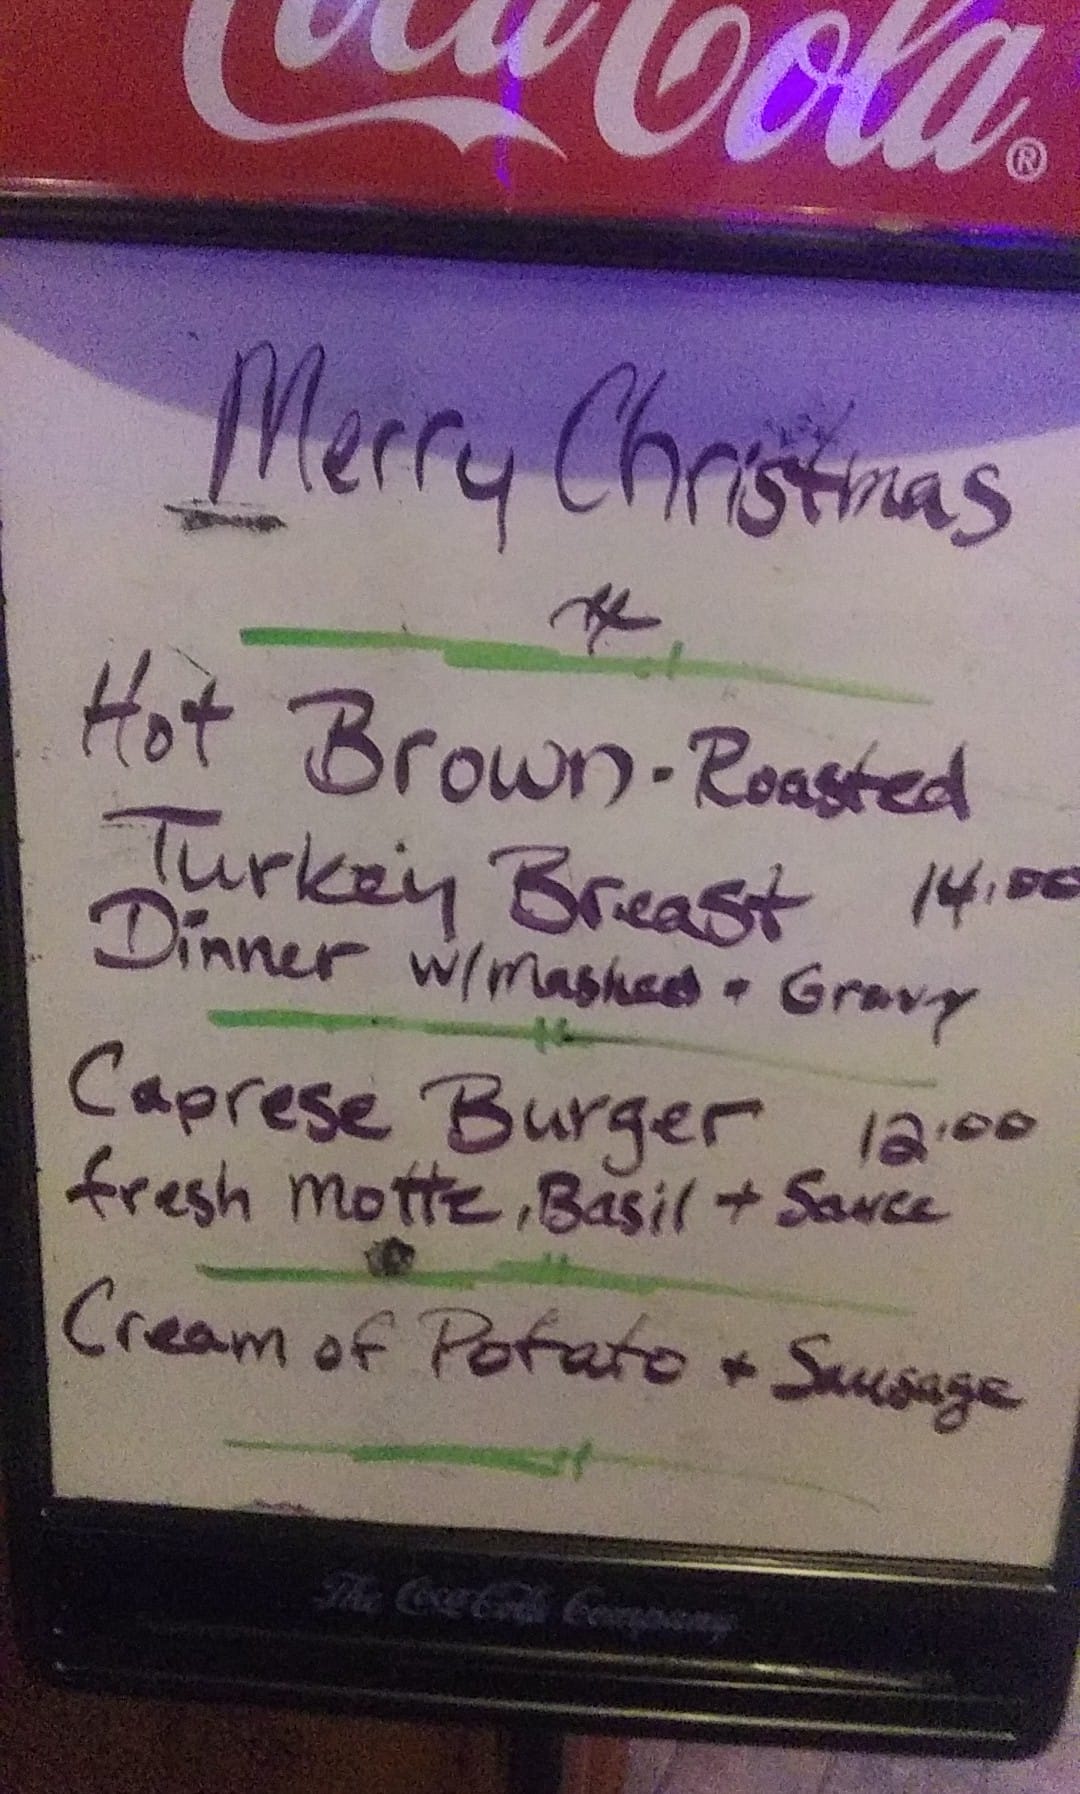 Coca-Cola®
Merry Christmas
Hot Brown - Roasted
Turkey Breast 14.00
Dinner w/ mashed + Gravy
Caprese Burger 12.00
fresh mottz, Basil + Sauce
Cream of Potato + Sausage
The Coca-Cola Company